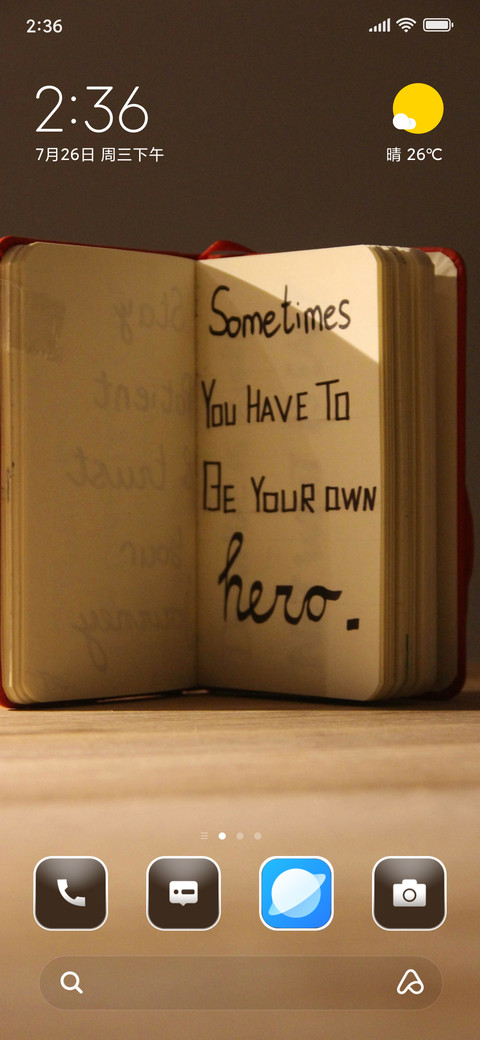 2:36
2:36
7月26日 周三下午
晴 26℃
Sometimes
You HAVE TO
BE YOUR OWN
hero.
Stay
Patient
& trust
Your
Journey